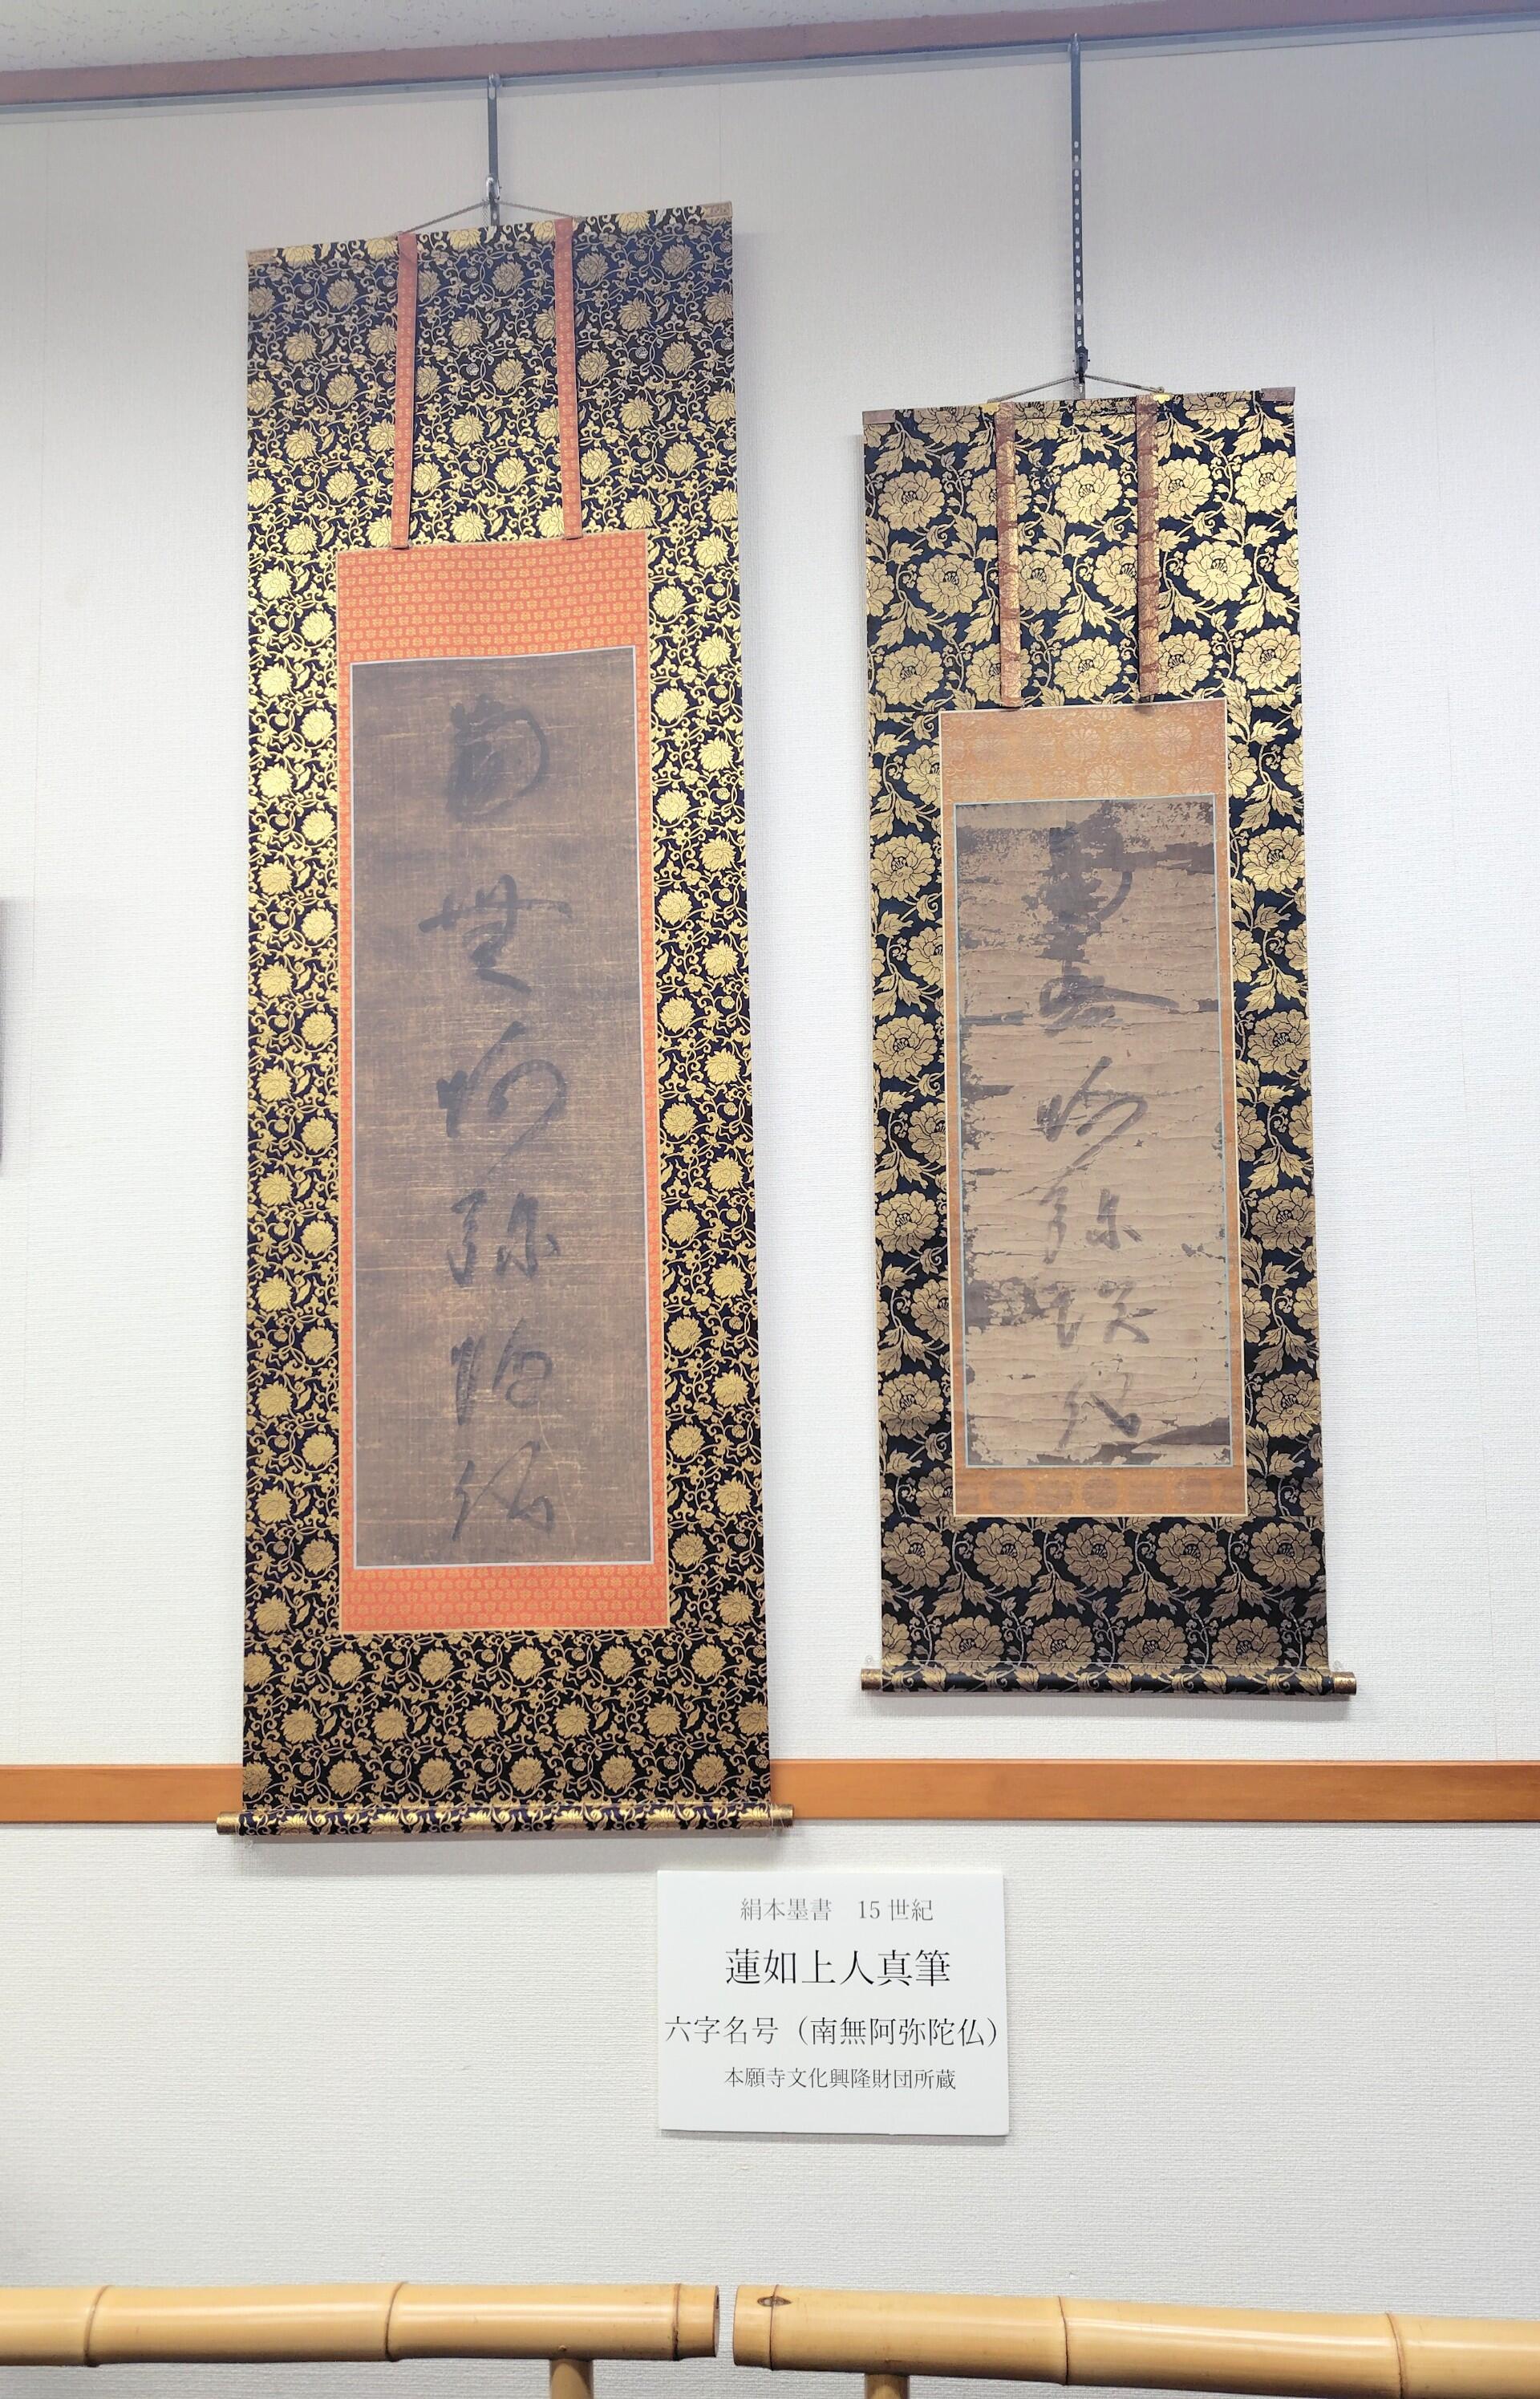 南无阿弥陀仏
南无阿弥陀仏
絹本墨書　15世紀
蓮如上人真筆
六字名号（南無阿弥陀仏）
本願寺文化興隆財団所蔵